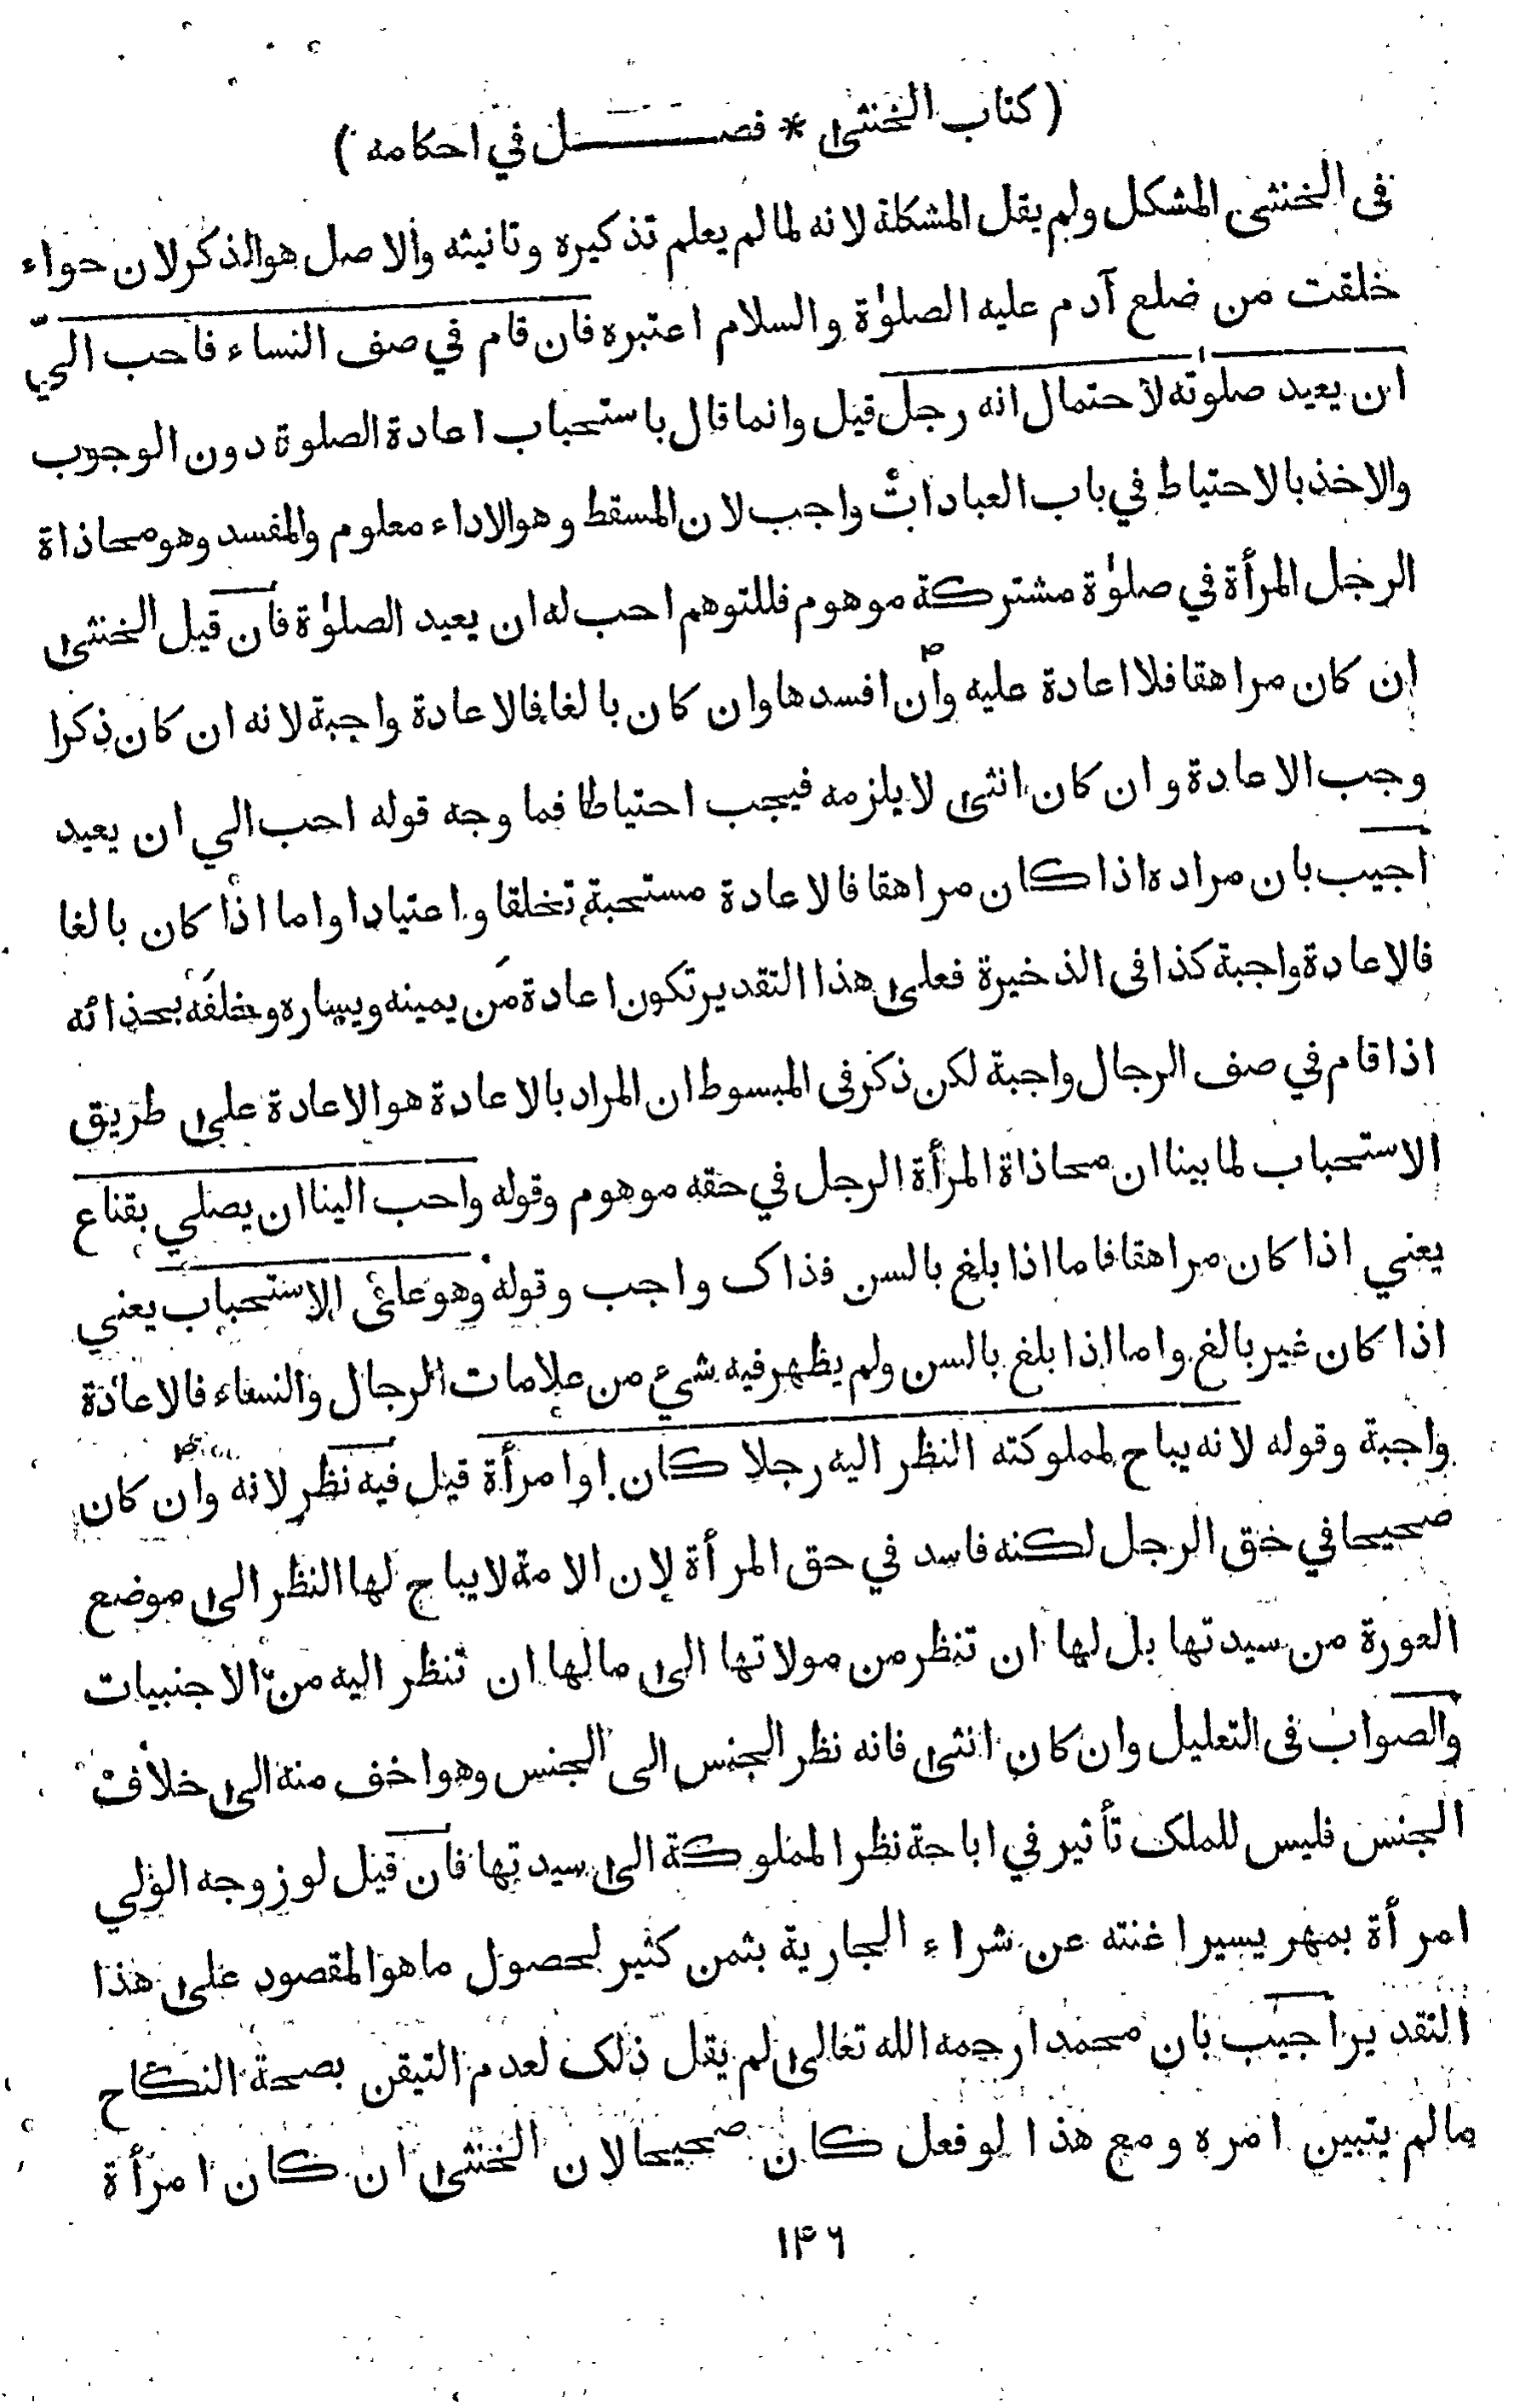 ( كتاب الخنثى * فصل في احكامه )
فى الخنثى المشكل ولم يقل المشكلة لانه لما لم يعلم تذكيره وتانيثه والاصل هو الذكر لان حواء
خلقت من ضلع آدم عليه الصلوٰة والسلام اعتبره فان قام في صف النساء فاحب اليّ
ان يعيد صلوته لاحتمال انه رجل قيل وانما قال باستحباب اعادة الصلوة دون الوجوب
والاخذ بالاحتياط في باب العبادات واجب لان المسقط وهو الاداء معلوم والمفسد وهو محاذاة
الرجل المرأة في صلوٰة مشتركة موهوم فللتوهم احب له ان يعيد الصلوٰة فان قيل الخنثى
ان كان مراهقا فلا اعادة عليه وان افسدها وان كان بالغا فالاعادة واجبة لانه ان كان ذكرا
وجب الاعادة وان كان انثى لا يلزمه فيجب احتياطا فما وجه قوله احب الي ان يعيد
اجيب بان مراده اذا كان مراهقا فالاعادة مستحبة تخلقا واعتيادا واما اذا كان بالغا
فالاعادة واجبة كذا فى الذخيرة فعلى هذا التقدير تكون اعادة مَن يمينه ويساره وخلفه بحذائه
اذا قام في صف الرجال واجبة لكن ذكر فى المبسوط ان المراد بالاعادة هو الاعادة على طريق
الاستحباب لما بينا ان محاذاة المرأة الرجل في حقه موهوم وقوله واحب الينا ان يصلي بقناع
يعني اذا كان مراهقا فاما اذا بلغ بالسن فذاك واجب وقوله وهو على الاستحباب يعني
اذا كان غير بالغ واما اذا بلغ بالسن ولم يظهر فيه شيء من علامات الرجال والنساء فالاعادة
واجبة وقوله لانه يباح لمملوكته النظر اليه رجلا كان او امرأة قيل فيه نظر لانه وان كان
صحيحا في حق الرجل لكنه فاسد في حق المرأة لان الامة لا يباح لها النظر الى موضع
العورة من سيدتها بل لها ان تنظر من مولاتها الى ما لها ان تنظر اليه من الاجنبيات
والصواب فى التعليل وان كان انثى فانه نظر الجنس الى الجنس وهو اخف منه الى خلاف
الجنس فليس للملك تأثير في اباحة نظر المملوكة الى سيدتها فان قيل لو زوجه الولي
امرأة بمهر يسير اغنته عن شراء الجارية بثمن كثير لحصول ما هو المقصود على هذا
التقدير اجيب بان محمدا رحمه الله تعالى لم يقل ذلك لعدم التيقن بصحة النكاح
ما لم يتبين امره ومع هذا لو فعل كان صحيحا لان الخنثى ان كان امرأة
١۴٦